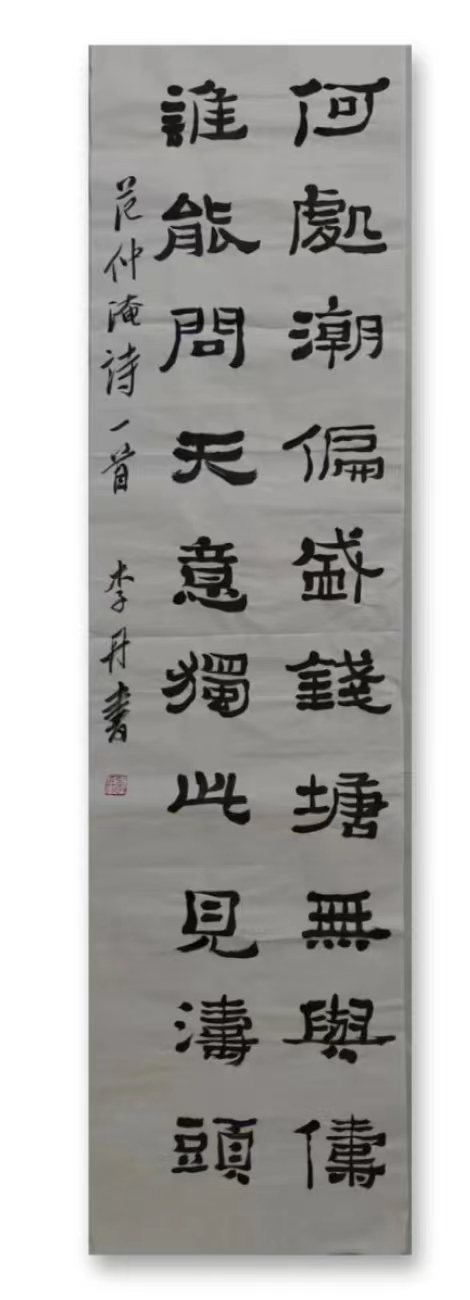 何處潮偏盛錢塘無與儔
誰能問天意獨此見濤頭
范仲淹詩一首 李丹書